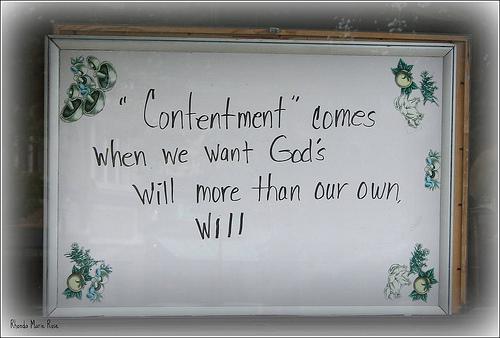 "Contentment" comes
when we want God's
will more than our own,
Will
Rhonda Marie Rose